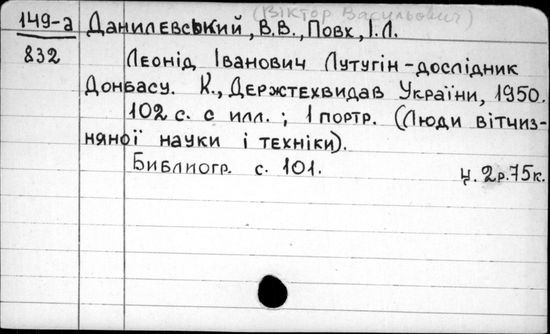 (Віктор Васильович)
149-а Данилевський, В.В., Повх, І.Л.
832 Леонід Іванович Лутугін-дослідник
Донбасу. К., Держтехвидав України, 1950.
102 с. с илл.; 1 портр. (Люди вітчиз-
няної науки і техніки).
Библиогр. с. 101. ц. 2р.75к.